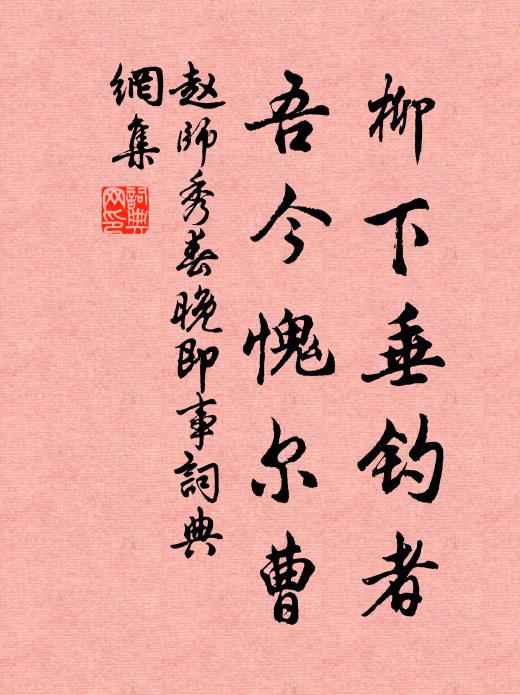 柳下垂钓者
吾今愧尔曹
赵師秀春晚即事詞典
網集
詞典
网印